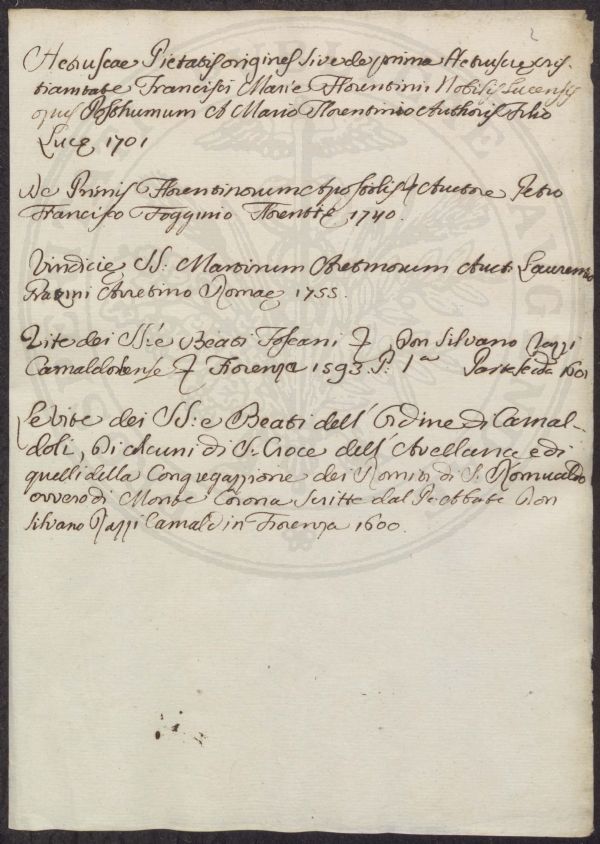 2
Hetruscae Pietatis origines sive de prima Hetruriç xris
tianitate Francisci Mariç Florentinii Nobilis Lucensis
opus Posthumum A Mario Florentinio Authoris Filio
Lucç 1701
De Primis Florentinorum Apostolis Auctore Petro
Francisco Fogginio Florentiç 1740.
Vindiciç SS: Martirum Aretinorum Auct: Laurentio
Aretino Romaç 1755.
Vite dei SS: e Beati Toscani Don Silvano Razzi
Camaldolense Fiorenza 1593. P: 1ª Parte Secda 1601
Le vite dei SS: e Beati dell' Ordine di Camal-
doli, Di Alcuni di S. Croce dell' Avellana, e di
quelli della Congregazzione dei Romiti di S. Romualdo
ovvero di Monte Corona scritte dal Pe: Abbate Don
Silvano Razzi Camald in Fiorenza 1600.